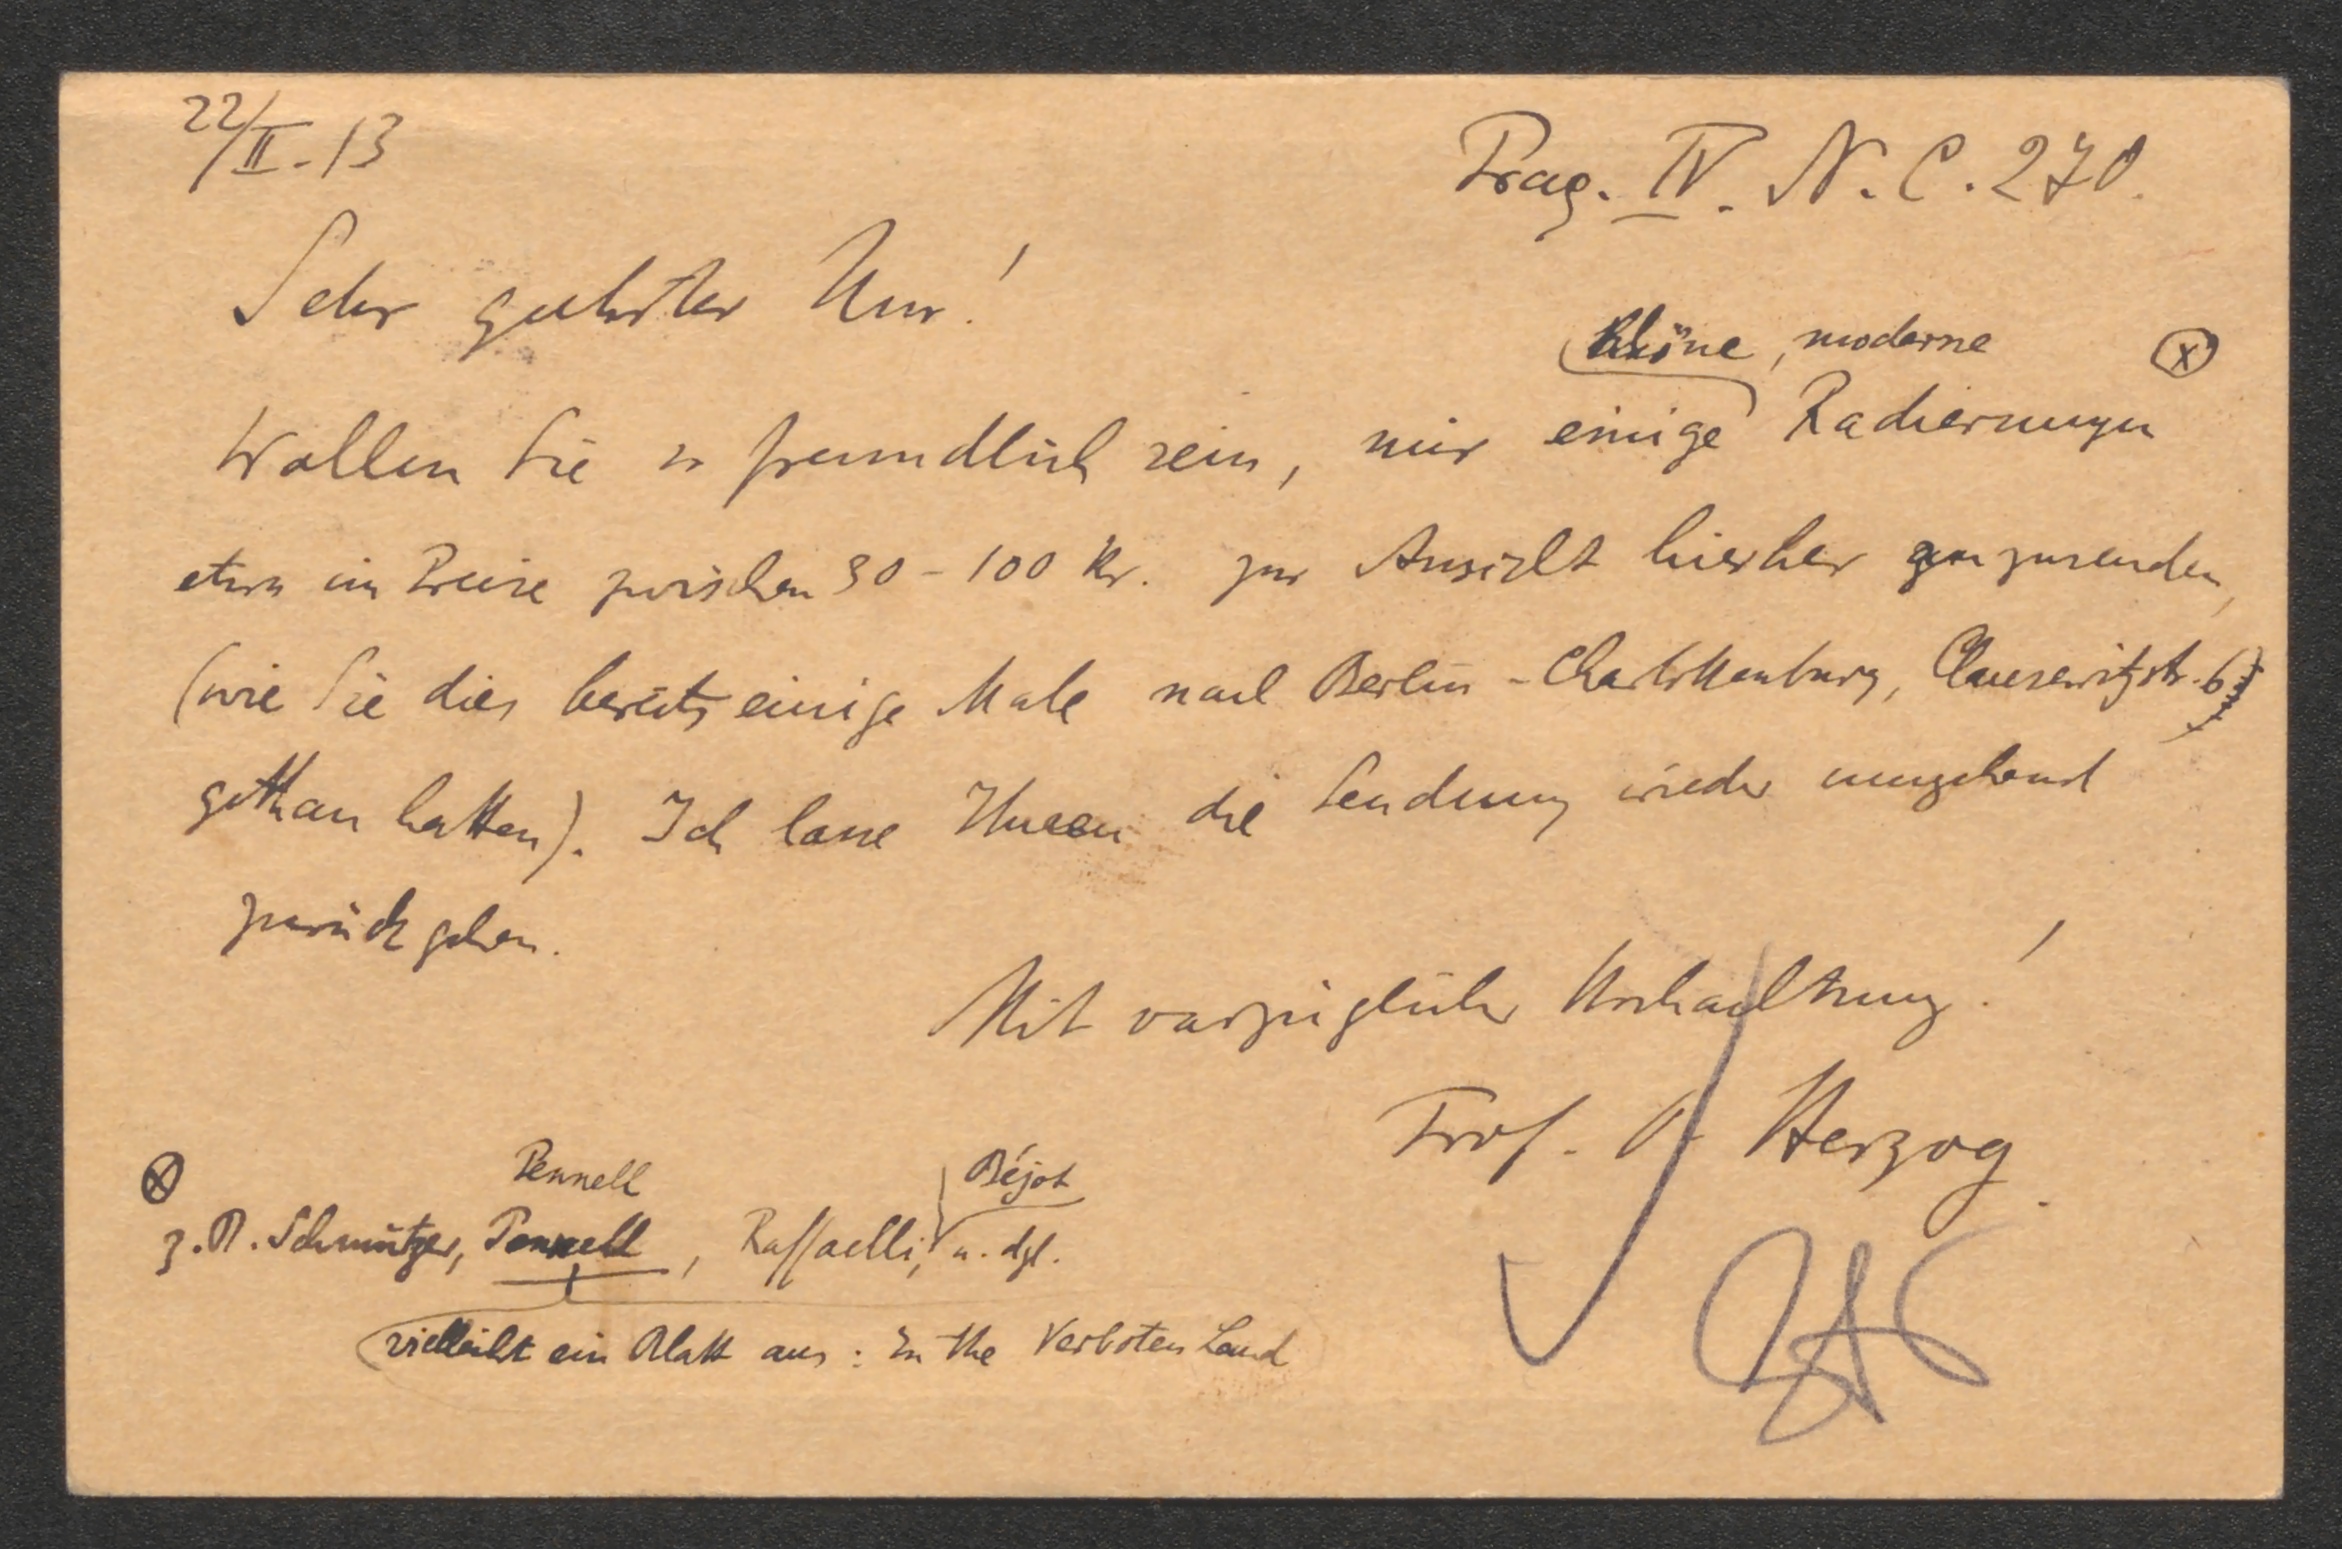 22/II. 13
Prag. IV. N. C. 270.
Sehr geehrter Herr!
schöne, moderne (x)
Wollen Sie so freundlich sein, mir einige Radierungen
etwa im Preise zwischen 30 - 100 Kr. zur Ansicht hierher zuzusenden,
(wie Sie dies bereits einige Male nach Berlin - Charlottenburg, Clausewitzstr. 6
gethan hatten). Ich lasse Ihnen die Sendung wieder umgehend
zurückgehen.
Mit vorzüglicher Hochachtung!
Prof. Herzog.
(x) Pennell Béjot
z. B. Schmutzer, Pennell, Raffaelli, u. dgl.
vielleicht ein Blatt aus: In the Verboten Land